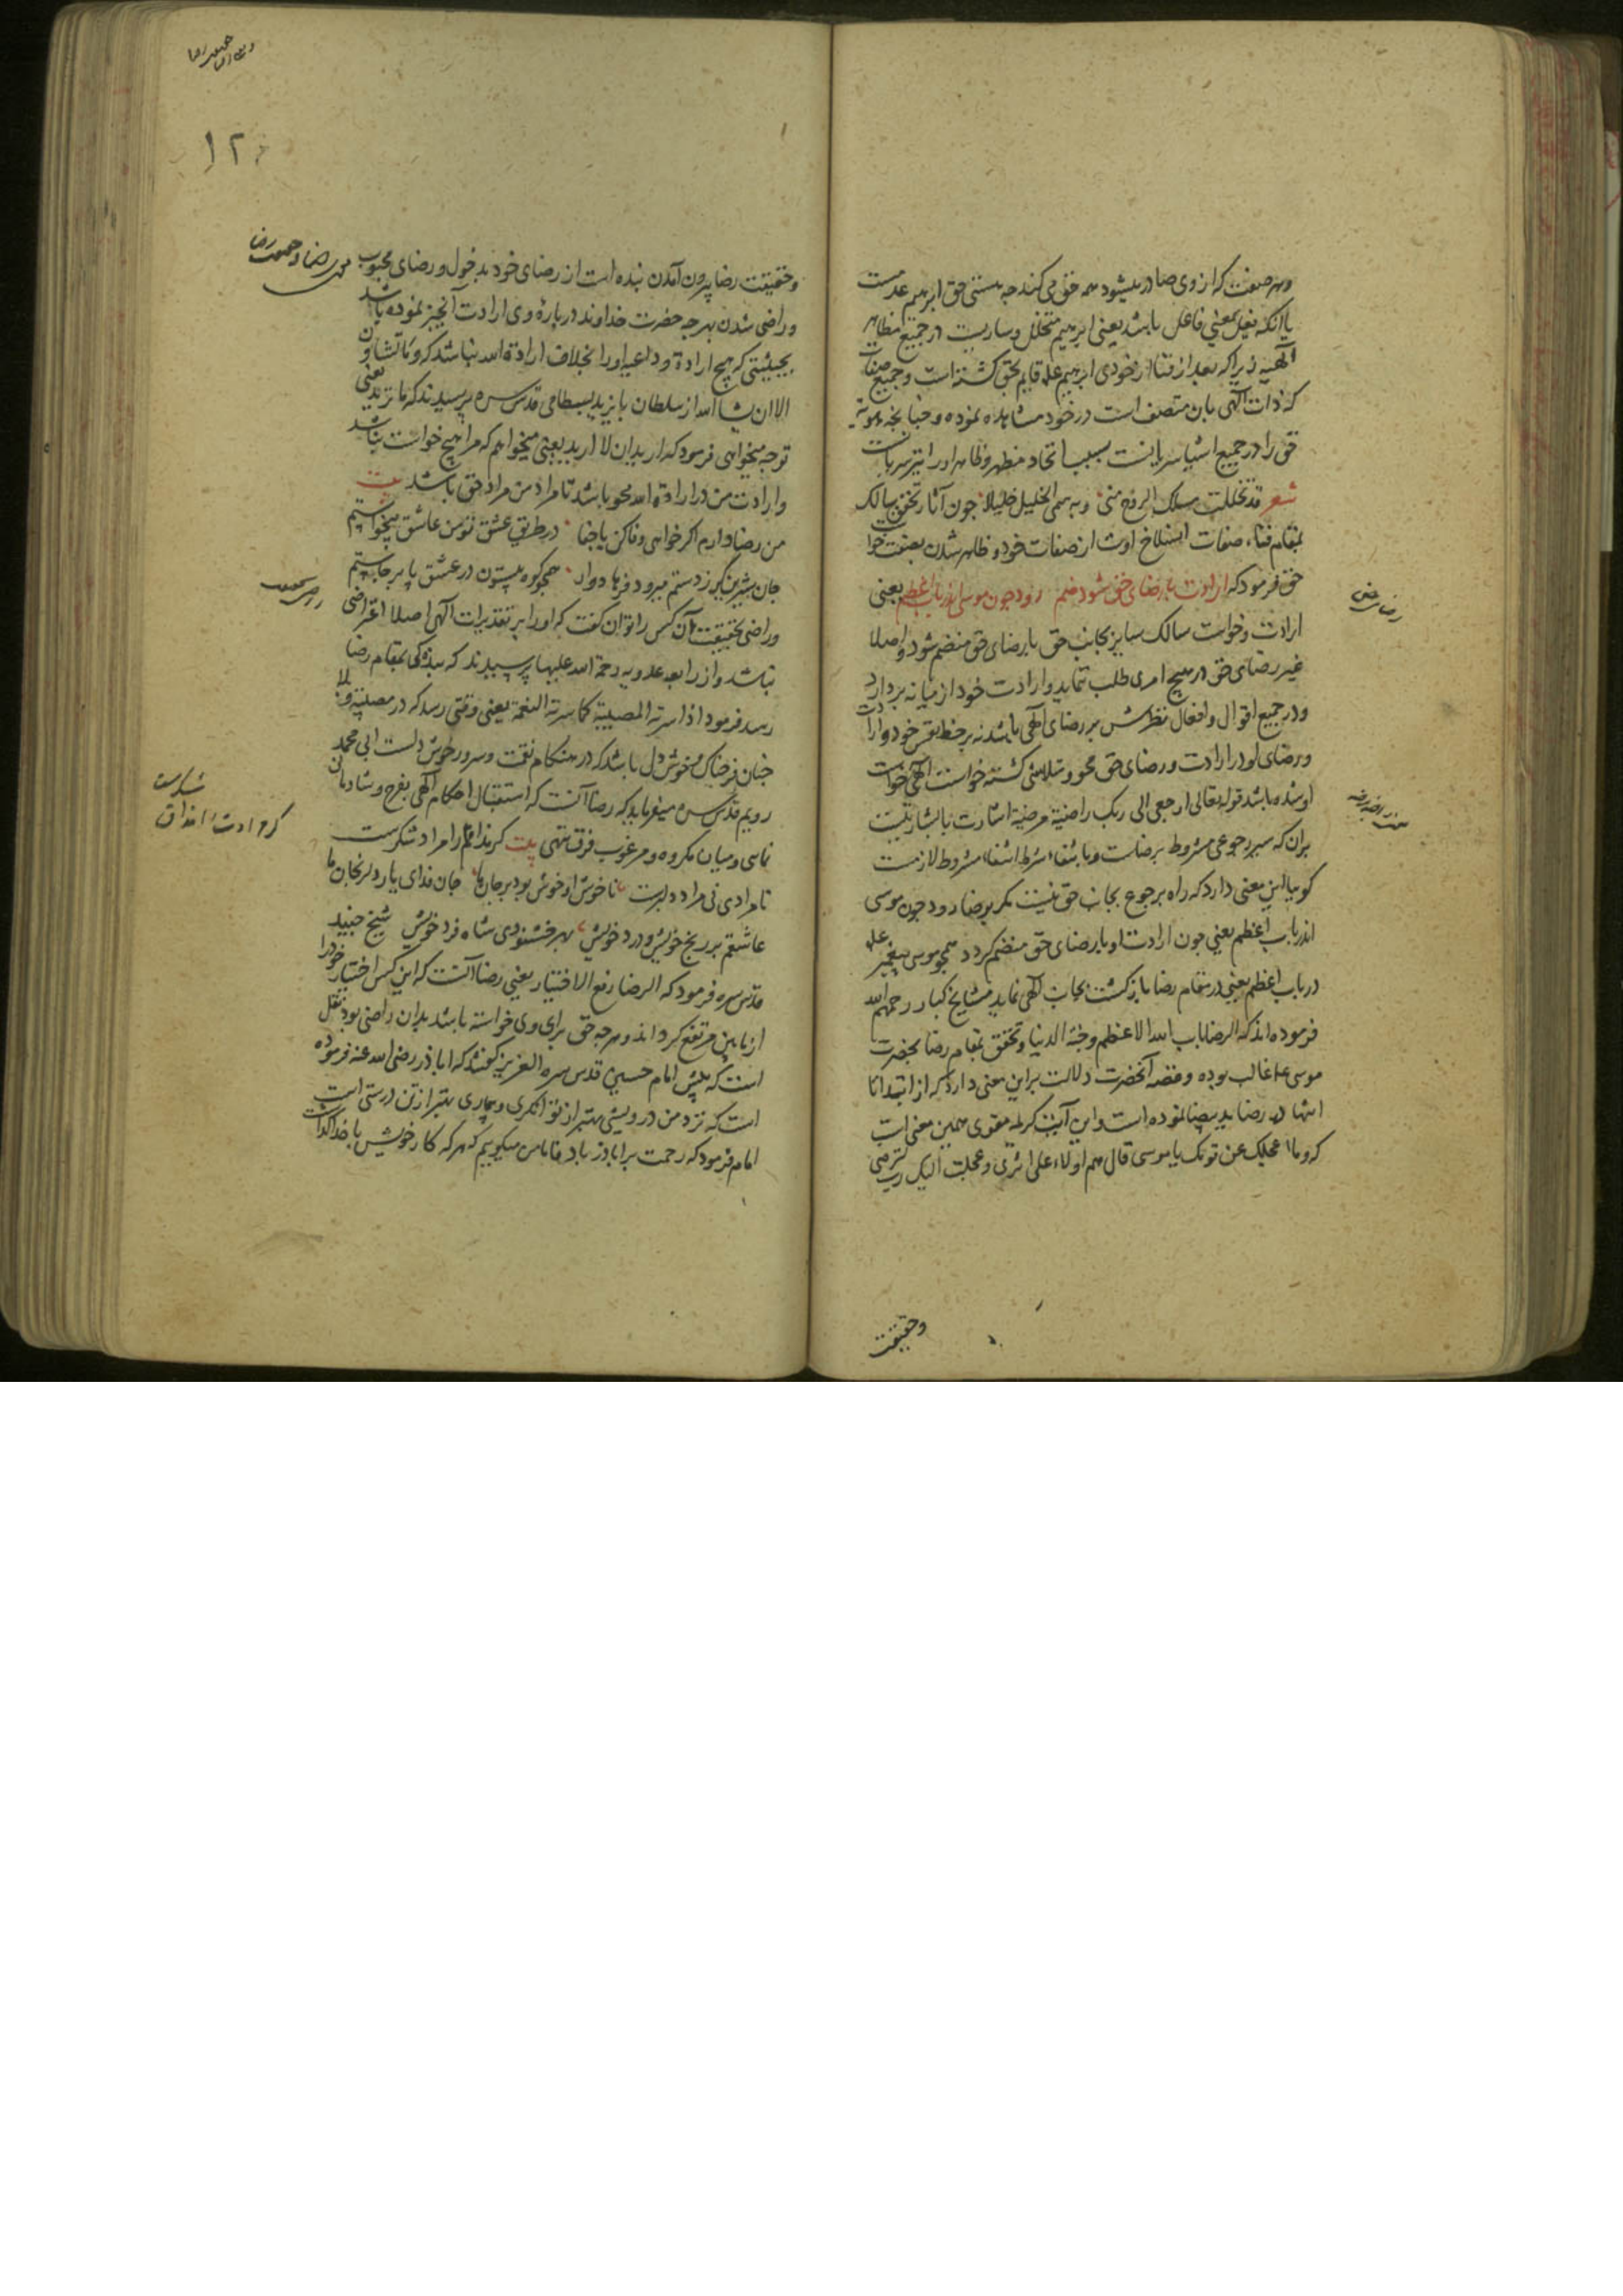 وهر صفت که از وی صادر میشود همه حق می کند چه هستی حق ابرهیم عدمست
یا آنکه فعیل بمعنی فاعل باشد یعنی ابرهیم متخلل و ساریست در جمیع مظاهر
الهیه زیرا که بعد از فنا از خودی ابرهیم علم قایم بحق کشته است و جمیع صفات
که ذات الهی بان متصف است در خود مشاهده نموده و چنانچه هویة
حق را در جمیع اشیا سریانست بسبب اتحاد مظهر و ظاهر او را نیز سریانست
شعر قد تخللت مسلک الروح منی وبه سمی الخلیل خلیلا چون آثار تحقق سالک
بمقام فناء صفات انسلاخ اوست از صفات خود و ظاهر شدن بصفت خواست
حق فرمود که ارادت با رضای حق شود ضم رود چون موسی اندر باب اعظم یعنی
ارادت و خواست سالک سایر بجانب حق با رضای حق منضم شود و اصلا
غیر رضای حق در هیچ امری طلب ننماید و ارادت خود از میانه بردارد
و در جمیع اقوال و افعال نظرش بر رضای الهی باشد نه بر حظ نفس خود و ارادت
و رضای او در ارادت و رضای حق محو و متلاشی کشته خواست الهی خواست
او شده باشد قوله تعالی ارجعی الی ربک راضیة مرضیة اشارت بالبشارتیست
بران که سیر رجوعی مشروط برضاست و بانتفاء شرط انتفاء مشروط لازمست
کوییا این معنی دارد که راه برجوع بجانب حق نیست مکر برضا رود چون موسی
اندر باب اعظم یعنی چون ارادت او با رضای حق منضم کردد همچو موسی پیغمبر علم
در باب اعظم یعنی در مقام رضا بازکشت بجانب الهی نماید مشایخ کبار رحمهم الله
فرموده اند که الرضا باب الله الاعظم وجنة الدنیا و تحقق بمقام رضا بحضرت
موسی علم غالب بوده و قصه آنحضرت دلالت براین معنی دارد که از ابتدا تا
انتها در رضا ید بیضا نموده است و این آیت کریمه مقوی همین معنی است
که وما اعجلک عن قومک یا موسی قال هم اولاء علی اثری وعجلت الیک رب لترضی
وحقیقت
١٢
وحقیقت رضا بیرون آمدن بنده است از رضای خود بدخول در رضای محبوب
و راضی شدن بهرچه حضرت خداوند در بارۀ وی ارادت آنچیز نموده باشد
بحیثیتی که هیچ ارادة و داعیه او را بخلاف ارادة الله نباشد که وما تشاؤن
الا ان یشاء الله از سلطان بایزید بسطامی قدس سره پرسیدند که ما ترید یعنی
تو چه میخواهی فرمود که ارید ان لا ارید یعنی میخواهم که مرا هیچ خواست نباشد
وارادت من در ارادة الله محو باشد تا مراد من مراد حق باشد بیت
من رضا دارم اکر خواهی وفا کن یا جفا در طریق عشق تو من عاشق بیخواستم
جان شیرین کر ز دستم میرود فرهاد وار همچو کوه بیستون در عشق پا برجاستم
و راضی بحقیقت آن کس را توان کفت که او را بر تقدیرات الهی اصلا اعتراضی
نباشد و از رابعه عدویه رحمة الله علیها پرسیدند که بنده کی بمقام رضا
رسد فرمود اذا سرته المصیبة کما سرته النعمة یعنی وقتی رسد که در مصیبة و بلا
چنان فرحناک و خوش دل باشد که در هنکام نعمت و سرور خوش دلست ابی محمد
رویم قدس سره میفرماید که رضا آنست که استقبال احکام الهی بفرح و شادمانی
نماسی و میان مکروه و مرغوب فرق ننهی بیت کر مرادم را مراد شکرست
نامرادی نی مراد دلبرست ناخوش او خوش بود بر جان ما جان فدای یار دلرنجان ما
عاشقم بر رنج خویش و درد خویش بهر خشنودی شاه فرد خویش شیخ جنید
قدس سره فرمود که الرضا رفع الاختیار یعنی رضا آنست که این کس اختیار خود را
از مابین مرتفع کرداند و هرچه حق برای وی خواسته باشد بدان راضی بود نقل
است که پیش امام حسین قدس سره العزیز کفتند که اباذر رضی الله عنه فرموده
است که نزد من درویشی بهتر از توانکری و بیماری بهتر از تن درستی است
امام فرمود که رحمت بر اباذر باد فاما من میکوییم که هر که کار خویش با خدا کذاشت